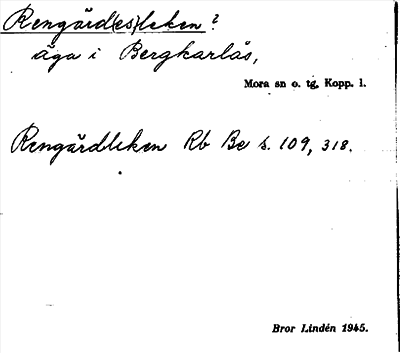 Rengärd(es)leken?
äga i Bergkarlås,
Mora sn o. tg, Kopp. l.
Rengärdleken Rb Be s. 109, 318.
Bror Lindén 1945.